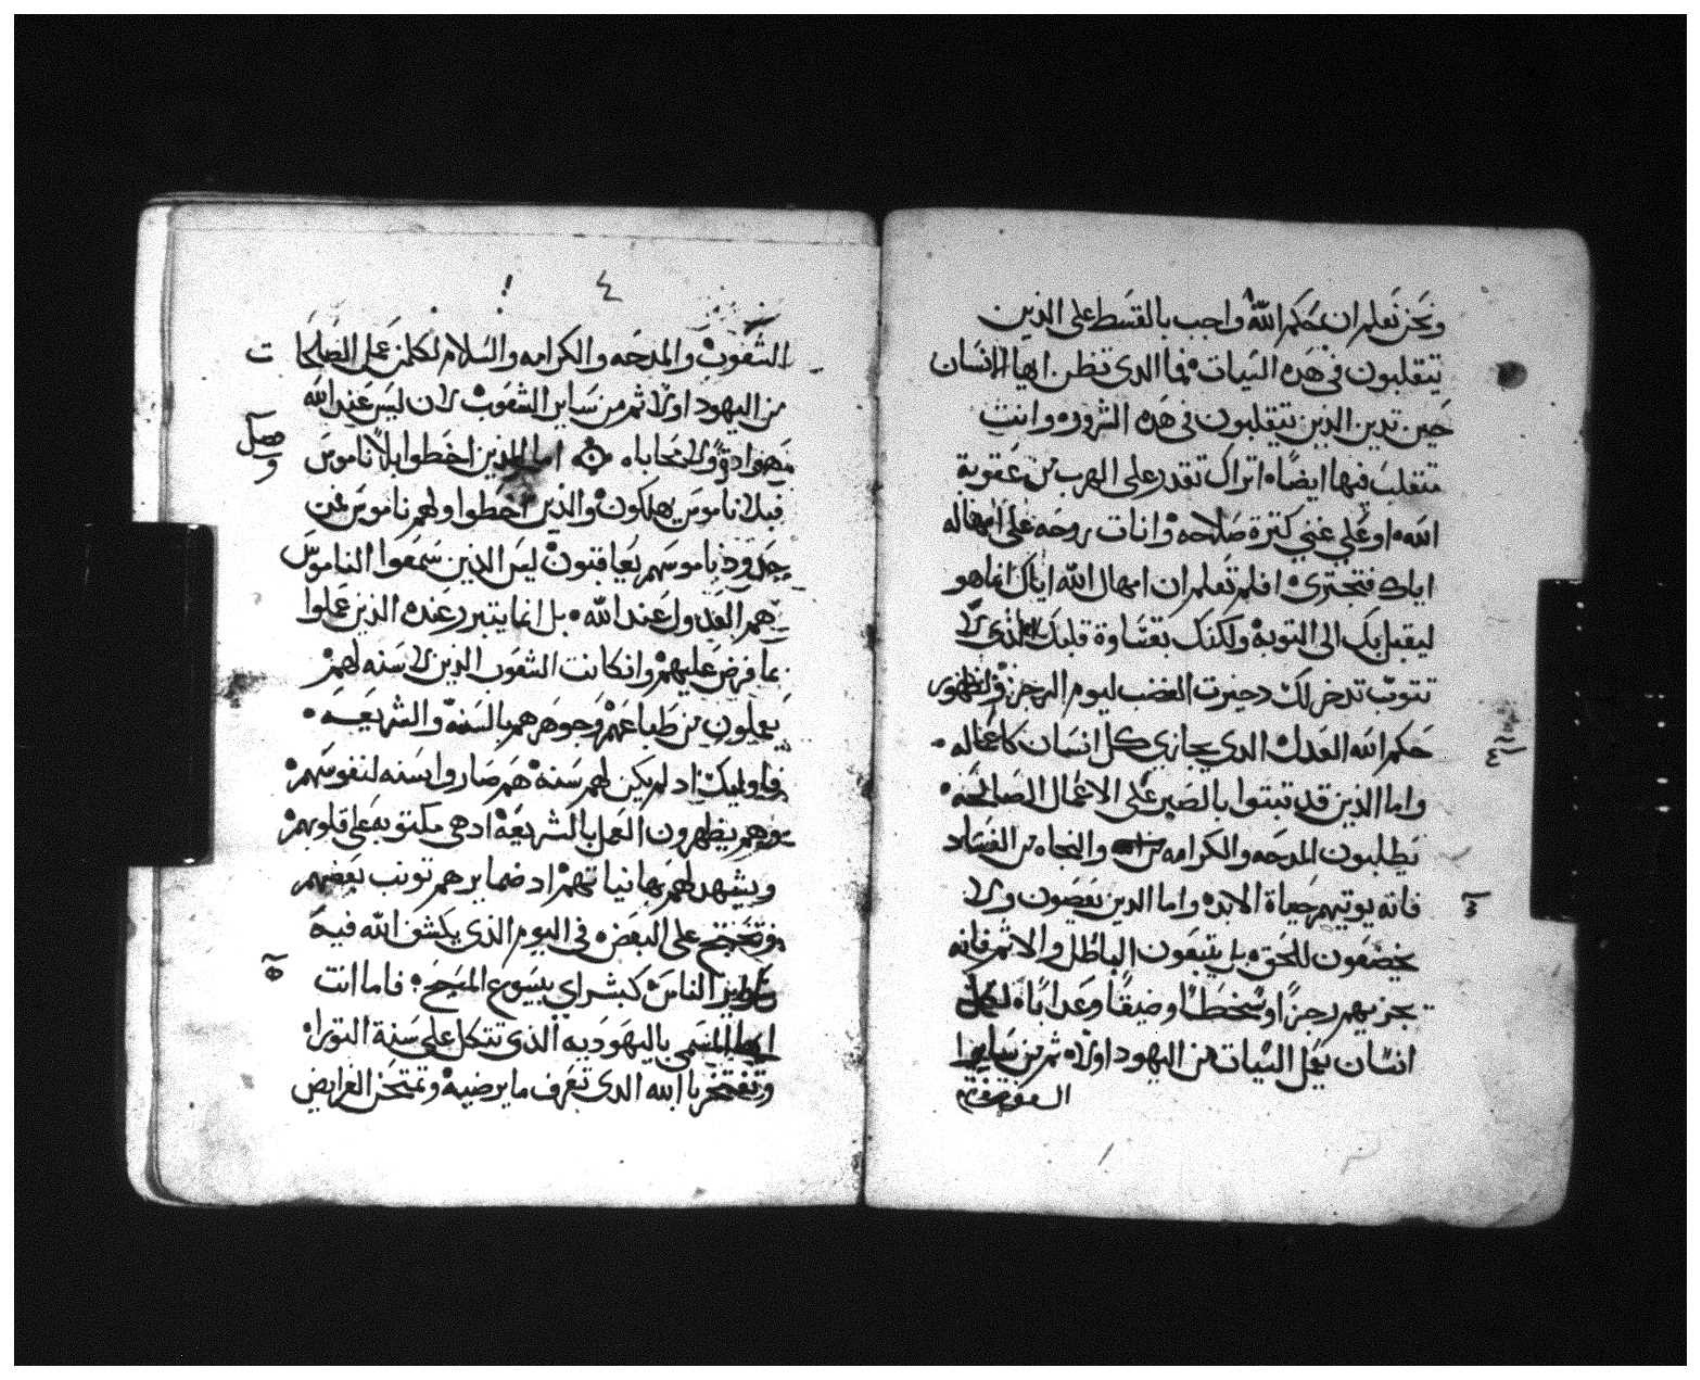 ونحن نعلم ان حكم الله واجب بالقسط على الذين
يتقلبون فى هذه السيات فما الدى تظن ايها الانسان
حين تدين الذين يتقلبون فى هده الشرور وانت
متقلب فيها ايضاه اتراك تقدر على الهرب من عقوبة
الله او على غني كترة صلاحه واناة روحه على امهاله
اياك فتجترى افلم تعلم ان امهال الله اياك انما هو
ليقبل بك الى التوبة ولكنك بقساوة قلبك الذى لا
تتوب تدخر لك دخيرت الغضب ليوم الرجز ولظهور
حكم الله العدل الدى يجازي كل انسان كاعماله
واما الذين قد تبتوا بالصبر على الاعمال الصالحه
يطلبون المدحه والكرامه والنجاه من الفساد
فانه يوتيهم حياة الابد واما الدين يعصون ولا
يخضعون للحق بل يتبعون الباطل والاثم فانه
يجزيهم رجزا وسخطا وضيقا وعدابا لكل
انسان يعمل السيات من اليهود اولا ثم من ساير
٤
٣
٤
الشعوب والمدحه والكرامه والسلام لكلمن عمل الصلحات
من اليهود اولا ثم من ساير الشعوب لان ليس عند الله
مهوادة ولا محاباه اما الذين اخطوا بلا ناموس
فبلا ناموس يهلكون والذين اخطوا ولهم ناموس فمن
حدود ناموسهم يعاقبون ليس الذين سمعوا الناموس
هم العدول عند الله بل انما يتبرر عنده الذين عملوا
بما فرض عليهم وانكانت الشعوب الذين لا سنه لهم
يعملون من طباعهم وجوهرهم بالسنة والشريعه
فاوليك اد لم يكن لهم سنة هم صاروا سنه لنفوسهم
وهم يظهرون العمل بالشريعة ادهى مكتوبه على قلوبهم
ويشهد لهم بها نياتهم اد ضمايرهم تونب بعضهم
وتحتج على البعض فى اليوم الذى يكشف الله فيه
سراير الناس كبشراي بيسوع المسيح فاما انت
ايها المسمى باليهوديه الذى تتكل على سنة التوراه
وتفتخر با الله الدى تعرف ما يرضيه وتمتحن الفرايض
فصل
و
٥